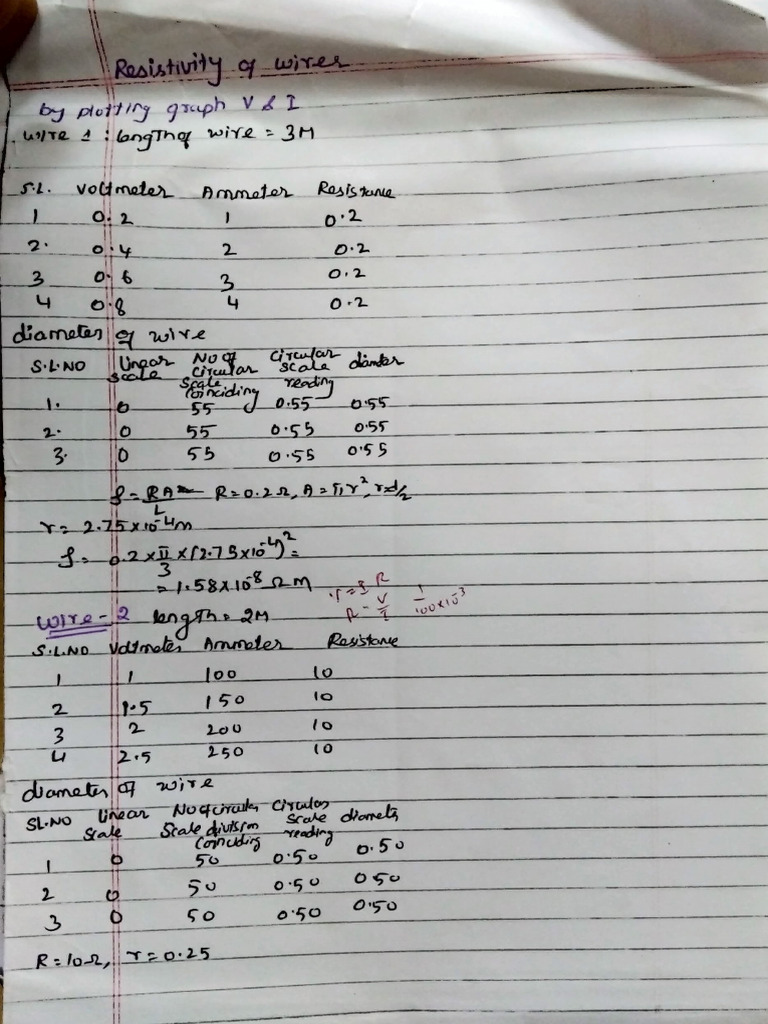 Resistivity of wires
by plotting graph V & I
wire 1 : length of wire = 3M
S.L. Voltmeter Ammeter Resistance
1 0.2 1 0.2
2. 0.4 2 0.2
3 0.6 3 0.2
4 0.8 4 0.2
diameter of wire
S.L.NO Linear scale No of circular scale coinciding circular scale reading diameter
1. 0 55 0.55 0.55
2. 0 55 0.55 0.55
3. 0 55 0.55 0.55
ρ = RA/L R = 0.2 Ω, A = πr², r = d/2
r = 2.75 × 10⁻⁴ m
ρ = 0.2 × π/3 × (2.75 × 10⁻⁴)² =
= 1.58 × 10⁻⁸ Ω M
R = V/I 1/100×10⁻³
wire - 2 length = 2M
S.L.NO Voltmeter Ammeter Resistance
1 1 100 10
2 1.5 150 10
3 2 200 10
4 2.5 250 10
diameter of wire
SL.NO Linear Scale No of circular Scale division coinciding Circular Scale reading diameter
1 0 50 0.50 0.50
2 0 50 0.50 0.50
3 0 50 0.50 0.50
R = 10 Ω, r = 0.25